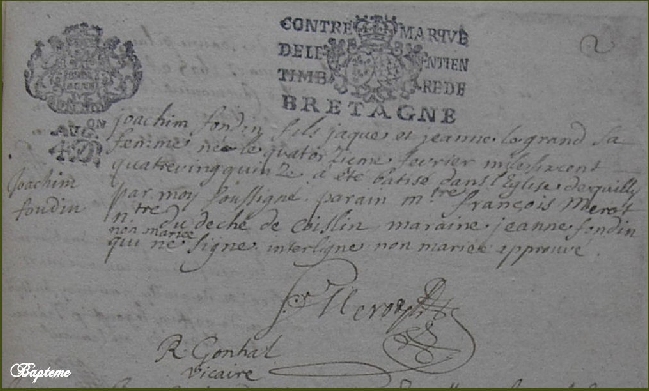 CONTRE MARQVE
DE LE ENTIEN
TIMB RE DE
BRETAGNE
AUG ON
joachim fondin fils jaque et jeanne legrand sa
femme née le quatorzieme fevrier mil sixcent
quatrevingquinze a été batisé dans l'Eglise de quilly
par moy soussigné parain mtre françois Meroit
ntre du deché de Coislin maraine jeanne fondin
non mariée
qui ne signe interligne non mariée approuvé
joachim
fondin
R Gonhal
vicaire
Bapteme